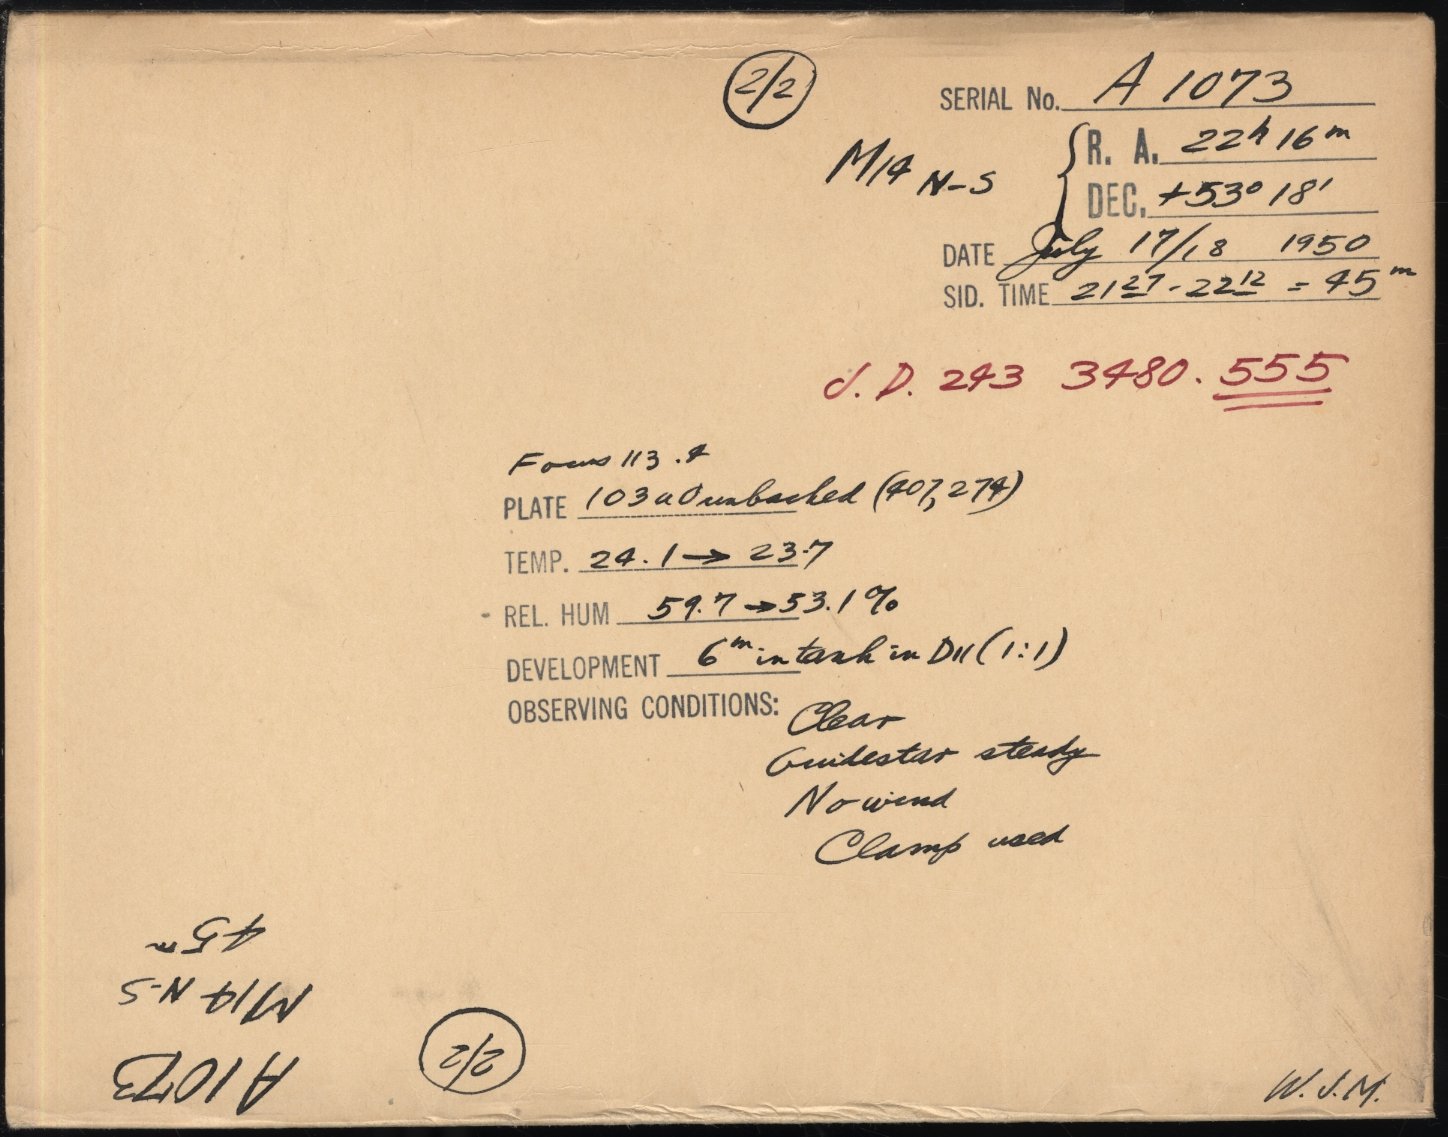 2/2
SERIAL No. A 1073
M14 N-S
R. A. 22h 16m
DEC. +53° 18'
DATE July 17/18 1950
SID. TIME 21 27 - 22 12 = 45m
J. D. 243 3480.555
Focus 113.4
PLATE 103aO unbacked (407, 274)
TEMP. 24.1 → 23.7
REL. HUM 59.7 → 53.1 %
DEVELOPMENT 6m in tank in D11 (1:1)
OBSERVING CONDITIONS: Clear
Guidestar steady
No wind
Clamp used
45m
M14 N-S
A1073
2/2
W. J. M.